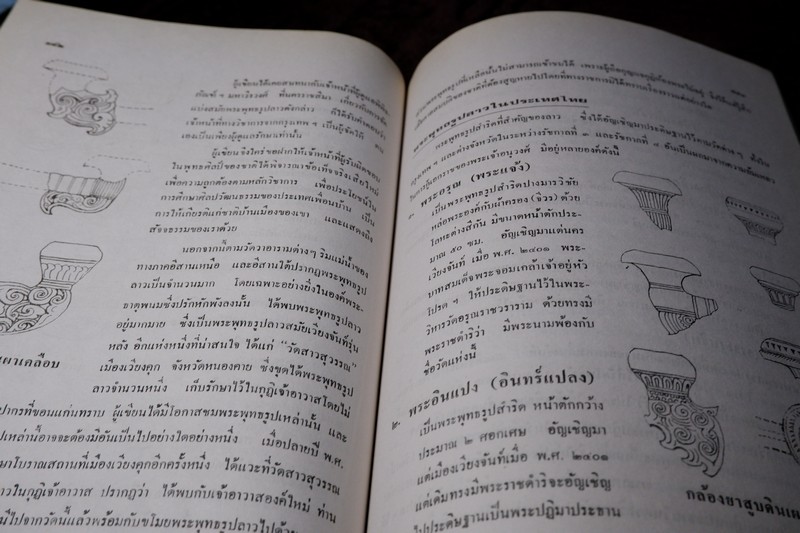 ผู้เขียนได้เคยสนทนากับเจ้าหน้าที่ผู้ดูแลพิพิธ
ภัณฑ์ฯ มหาวีรวงศ์ ที่นครราชสีมา เกี่ยวกับการ
แบ่งสมัยพระพุทธรูปลาวดังกล่าว ก็ได้รับคำตอบว่า
เจ้าหน้าที่ทางวิชาการจากกรุงเทพฯ เป็นผู้จัดไว้
เองเป็นเพียงผู้ดูแลรักษาเท่านั้น
ผู้เขียนจึงใคร่ขอฝากให้เจ้าหน้าที่ผู้รับผิดชอบ
ในพุทธศิลป์ของชาติได้พิจารณาข้อเท็จจริงเสียใหม่
เพื่อความถูกต้องตามหลักวิชาการ เพื่อประโยชน์ใน
การศึกษาศิลปวัฒนธรรมของประเทศเพื่อนบ้าน เป็น
การให้เกียรติแก่ชาติบ้านเมืองของเขา และแสดงถึง
สัจธรรมของเราด้วย
นอกจากนี้ตามวัดวาอารามต่างๆ ริมแม่น้ำของ
ทางภาคอีสานเหนือ และอีสานใต้ปรากฏพระพุทธรูป
ลาวเป็นจำนวนมาก โดยเฉพาะอย่างยิ่งในองค์พระ-
ธาตุพนมซึ่งปรักหักพังลงนั้น ได้พบพระพุทธรูปลาว
อยู่มากมาย ซึ่งเป็นพระพุทธรูปลาวสมัยเวียงจันท์รุ่น
หลัง อีกแห่งหนึ่งที่น่าสนใจ ได้แก่ "วัดสาวสุวรรณ"
เมืองเวียงคุก จังหวัดหนองคาย ซึ่งขุดได้พระพุทธรูป
ลาวจำนวนหนึ่ง เก็บรักษาไว้ในกุฏิเจ้าอาวาสโดยไม่
ปากรที่ขอนแก่นทราบ ผู้เขียนได้มีโอกาสชมพระพุทธรูปเหล่านั้น และ
ปเหล่านี้อาจจะต้องมีอันเป็นไปอย่างใดอย่างหนึ่ง เมื่อปลายปี พ.ศ.
ษาโบราณสถานที่เมืองเวียงคุกอีกครั้งหนึ่ง ได้แวะที่วัดสาวสุวรรณ
าวในกุฏิเจ้าอาวาส ปรากฏว่า ได้พบกับเจ้าอาวาสองค์ใหม่ ท่าน
มีไปจากวัดนี้แล้วพร้อมกับขโมยพระพุทธรูปลาวไปด้วย
เผาเคลือบ
พระพุทธรูปลาวในประเทศไทย
พระพุทธรูปสำริดที่สำคัญของลาว ซึ่งได้อัญเชิญมาประดิษฐานไว้ตามวัดต่างๆ ทั้งใน
กรุงเทพฯ และต่างจังหวัดในระหว่างรัชกาลที่ ๑ และรัชกาลที่ ๔
มีอยู่หลายองค์ดังนี้
๑. พระอรุณ (พระแจ้ง)
เป็นพระพุทธรูปสำริดปางมารวิชัย
หล่อพระองค์กับผ้าครอง (จีวร) ด้วย
โลหะต่างสีกัน มีขนาดหน้าตักประ-
มาณ ๕๐ ซม. อัญเชิญมาแต่นคร
เวียงจันท์ เมื่อ พ.ศ. ๒๔๐๑ พระ-
บาทสมเด็จพระจอมเกล้าเจ้าอยู่หัว
โปรดฯ ให้ประดิษฐานไว้ในพระ-
วิหารวัดอรุณราชวราราม ด้วยทรงมี
พระราชดำริว่า มีพระนามพ้องกับ
ชื่อวัดแห่งนี้
๒. พระอินแปง (อินทร์แปลง)
เป็นพระพุทธรูปสำริด หน้าตักกว้าง
ประมาณ ๒ ศอกเศษ อัญเชิญมา
แต่เมืองเวียงจันท์เมื่อ พ.ศ. ๒๔๐๑
แต่เดิมทรงมีพระราชดำริจะอัญเชิญ
ไปประดิษฐานเป็นพระปฏิมาประธาน
กล้องยาสูบดินเผ